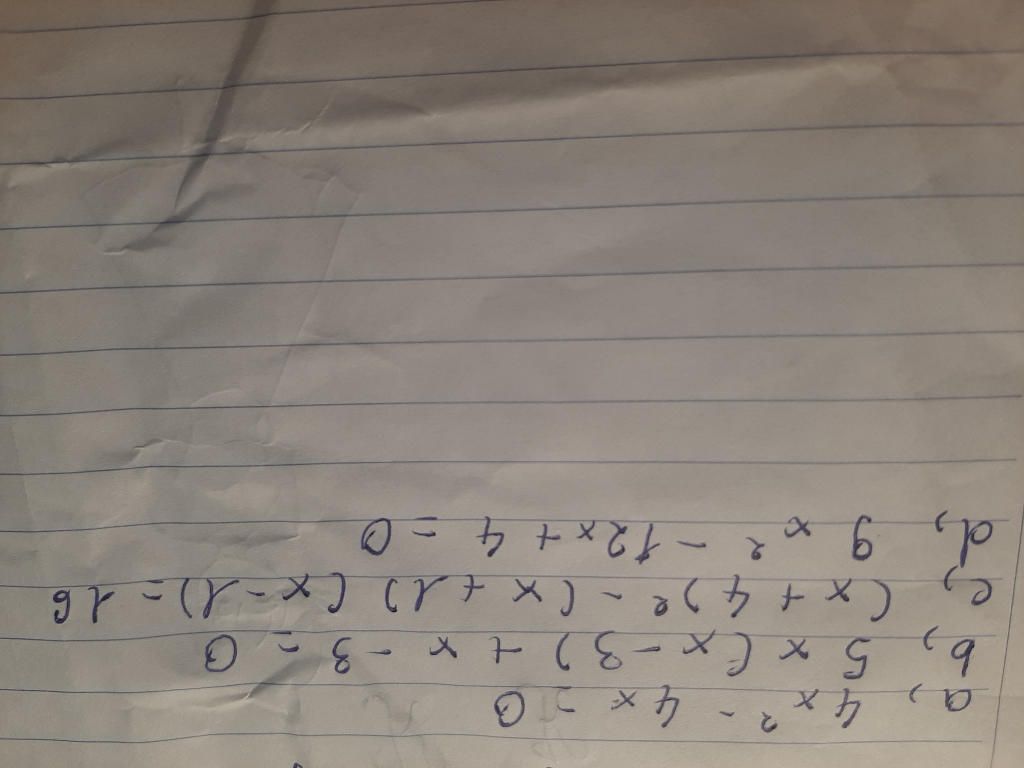 a, 4x² - 4x = 0
b, 5x (x - 3) + x - 3 = 0
c, (x + 4)² - (x + 1) (x - 1) = 16
d, 9x² - 12x + 4 = 0